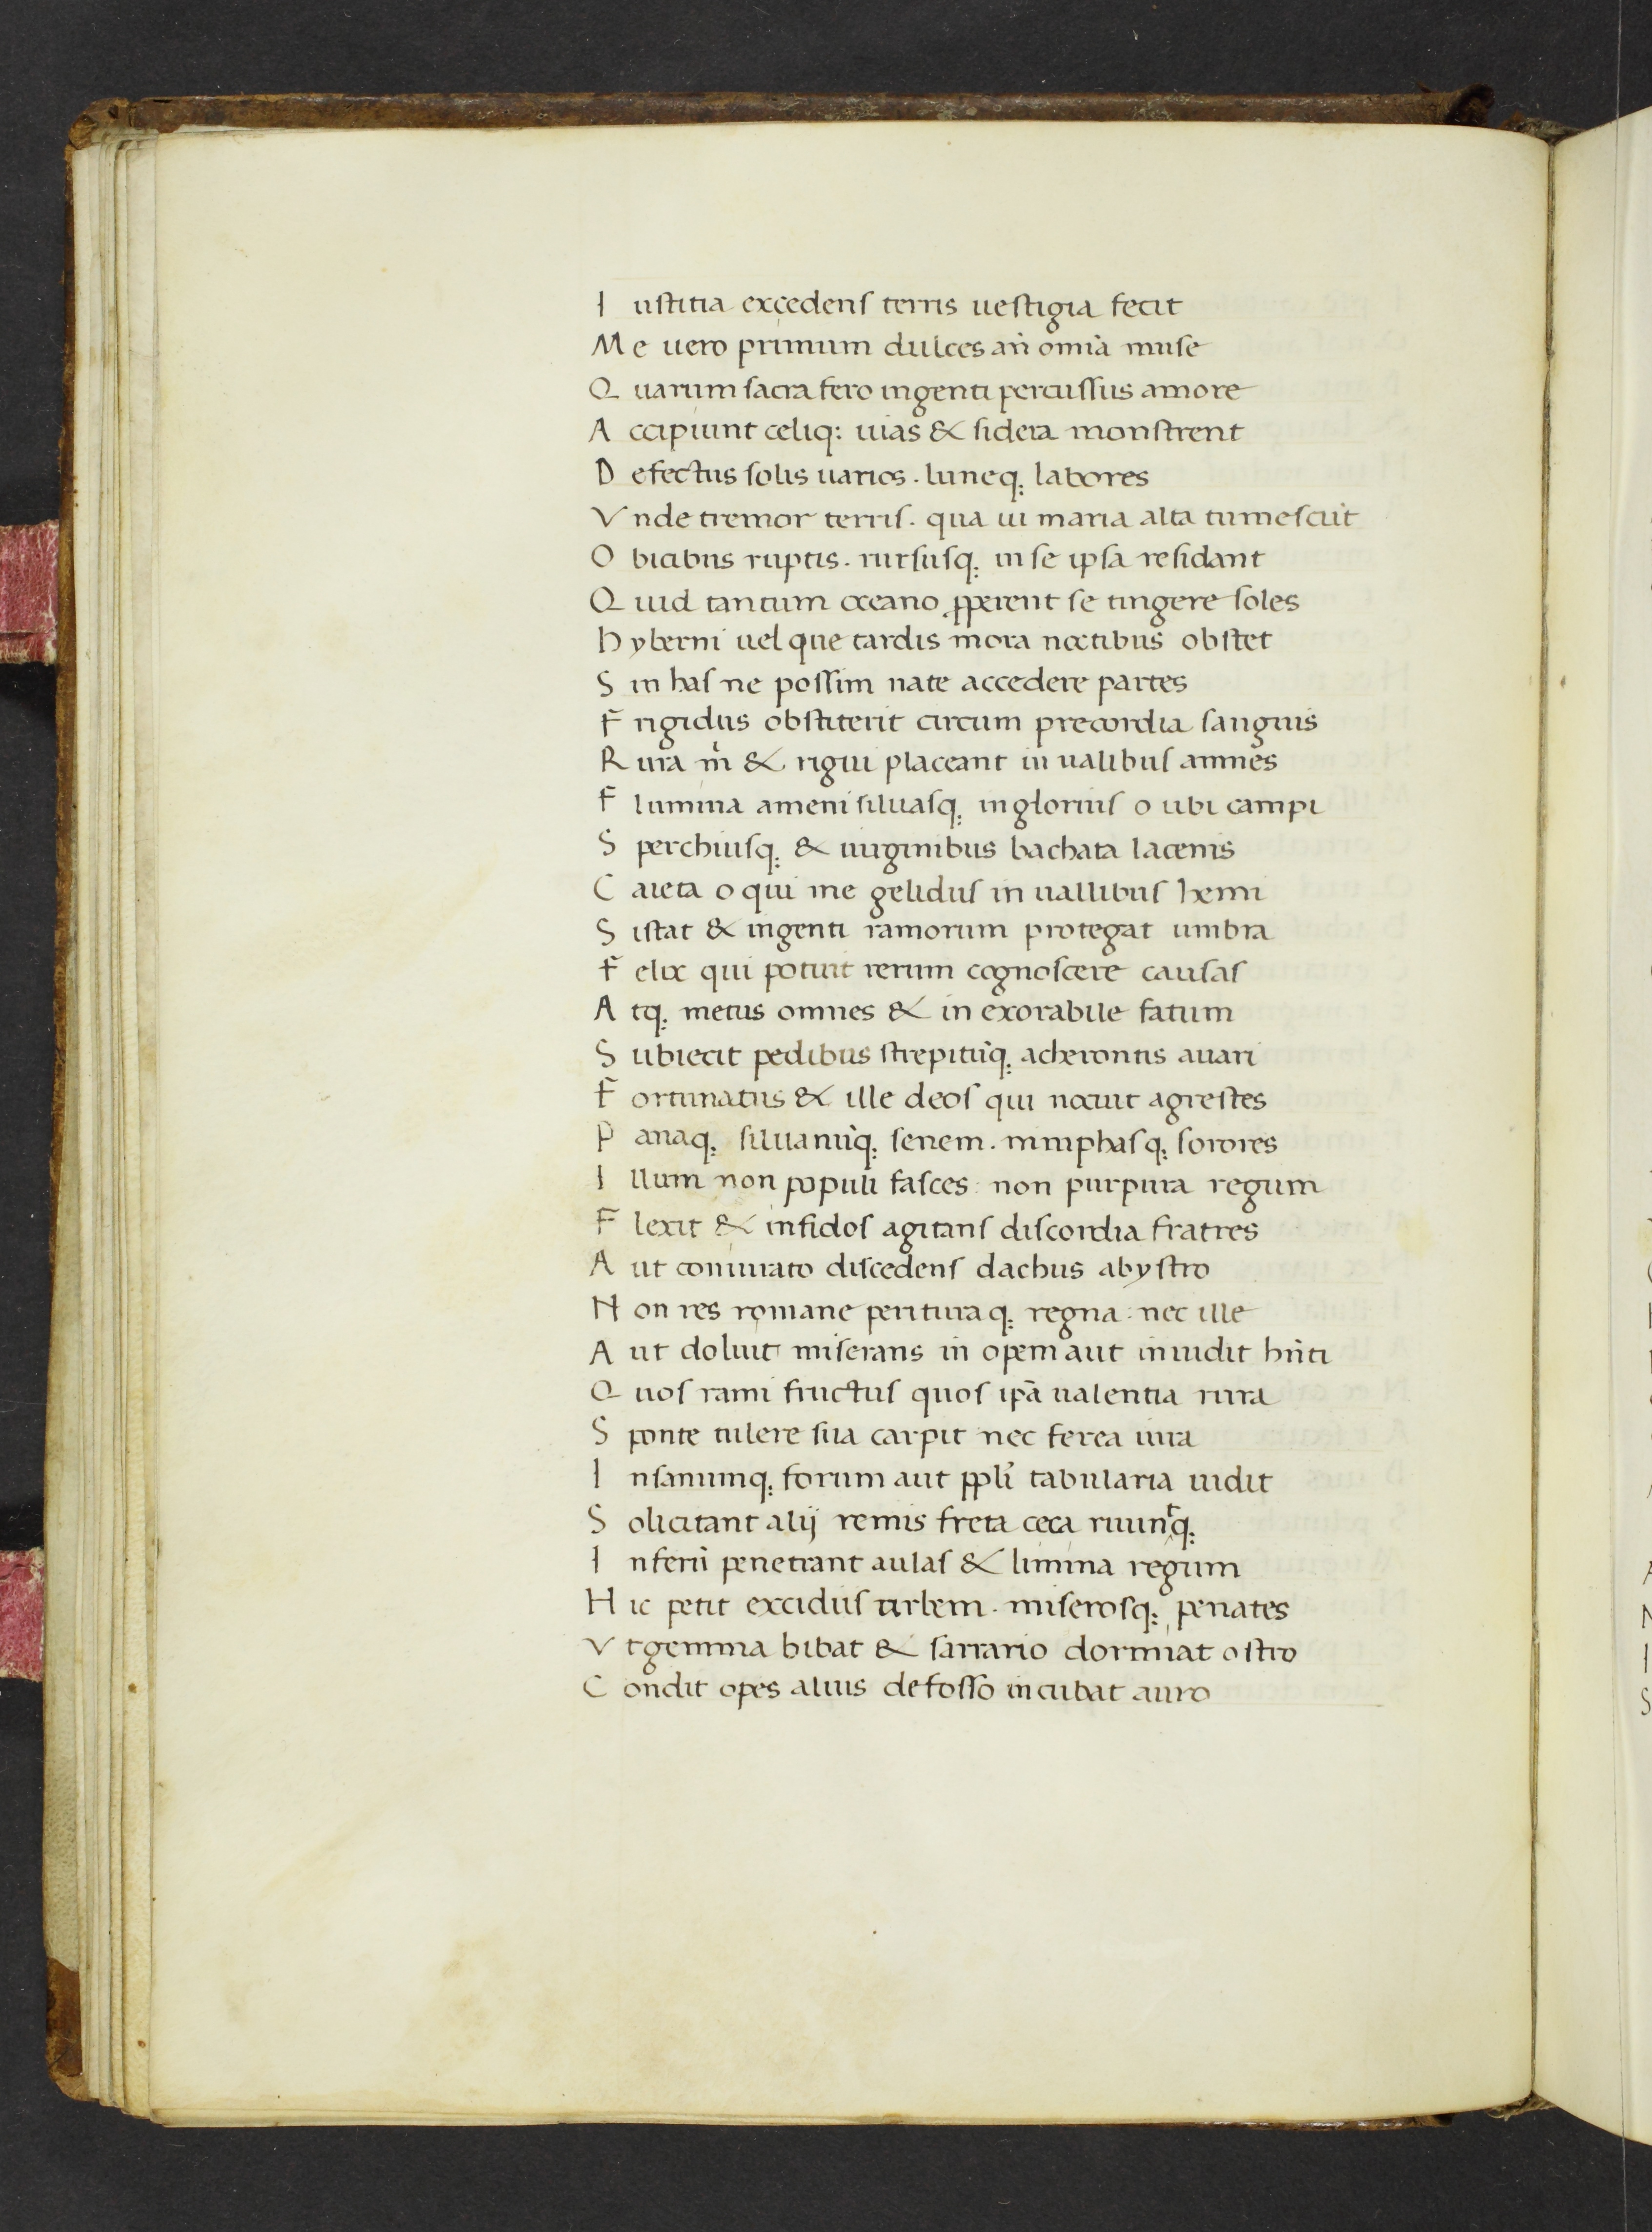 I ustitia excedens terris uestigia fecit
M e uero primum dulces añ omia muse
Q uarum sacra fero ingenti percussus amore
A ccipiunt celiq: uias & sidera monstrent
D efectus solis uarios. luneq; labores
V nde tremor terris. qua ui maria alta tumescũt
O bicibus ruptis. rursusq; in se ipsa residant
Q uid tantum oceano ꝓperent se tingere soles
h yberni uel que tardis mora noctibus obstet
S in has ne possim nate accedere partes
F rigidus obstiterit circum precordia sanguis
R ura m̃ & rigui placeant in ualibus amnes
F lumina ameni siluasq; inglorius o ubi campi
S perchiusq; & uirginibus bachata lacenis
C aieta o qui me gelidus in uallibus hemi
S istat & ingenti ramorum protegat umbra
F elix qui potuit rerum cognoscere causas
A tq; metus omnes & in exorabile fatum
S ubiecit pedibus strepitũq; acherontis auari
F ortunatus & ille deos qui nocuit agrestes
P anaq; siluanũq; senem. nimphasq; sorores
I llum non populi fasces non purpura regum
F lexit & infidos agitans discordia fratres
A ut coniurato discedens dachus abystro
N on res romane perituraq; regna. nec ille
A ut doluit miserans in opem aut inuidit hñti
Q uos rami fructus quos ipã ualentia rura
S ponte tulere sua carpit nec ferea iura
I nsanumq; forum aut ppli tabularia uidit
S olicitant alij remis freta ceca ruuntq;
I nferrũ penetrant aulas & limina regum
H ic petit excidus urbem. miserosq; penates
V t gemma bibat & sarrario dormiat ostro
C ondit opes alius defosso incubat auro